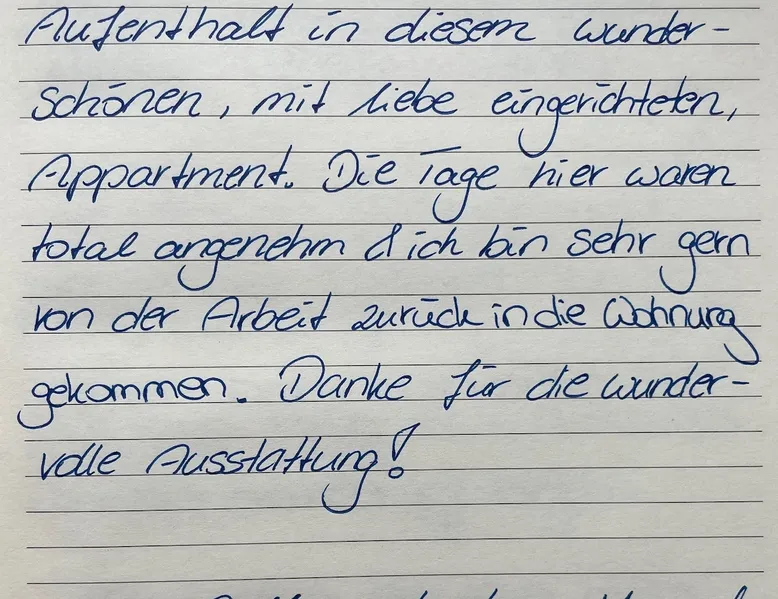 Aufenthalt in diesem wunder-
schönen, mit liebe eingerichteten,
Appartment. Die Tage hier waren
total angenehm & ich bin sehr gern
von der Arbeit zurück in die Wohnung
gekommen. Danke für die wunder-
volle Ausstattung!